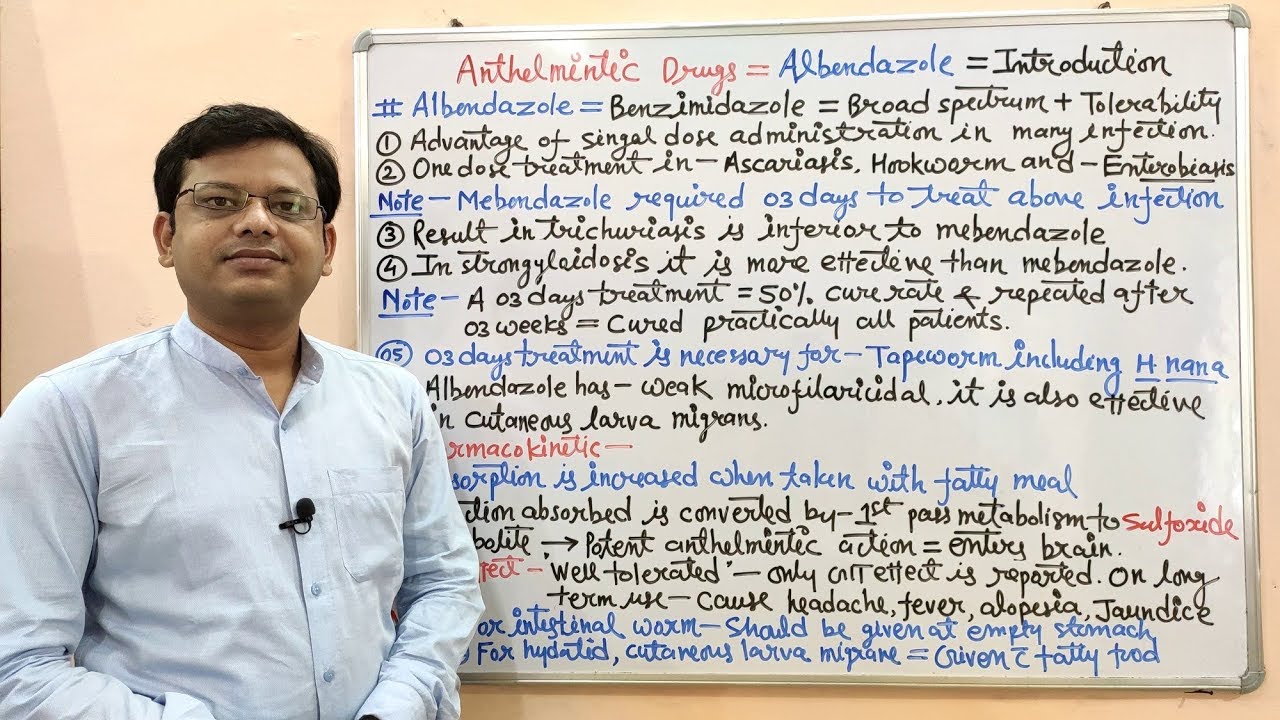 Anthelmintic Drugs = Albendazole = Introduction
# Albendazole = Benzimidazole = Broad spectrum + Tolerability
① Advantage of singal dose administration in many infection.
② One dose treatment in - Ascariasis, Hookworm and - Enterobiasis
Note - Mebendazole required 03 days to treat above infection
③ Result in trichuriasis is inferior to mebendazole
④ In strongylaidosis it is more effective than mebendazole.
Note - A 03 days treatment = 50% cure rate & repeated after
03 weeks = Cured practically all patients.
05 03 days treatment is necessary for - Tapeworm including H nana
Albendazole has - weak microfilaricidal, it is also effective
n cutaneous larva migrans.
rmacokinetic -
sorption is increased when taken with fatty meal
ction absorbed is converted by - 1st pass metabolism to Sulfoxide
bolite → Potent anthelmintic action = enters brain.
ffect - 'Well tolerated' - only GIT effect is reported. On long
term use - cause headache, fever, alopesia, Jaundice
or intestinal worm - Should be given at empty stomach
For hydatid, cutaneous larva migrane = Given c̄ fatty food